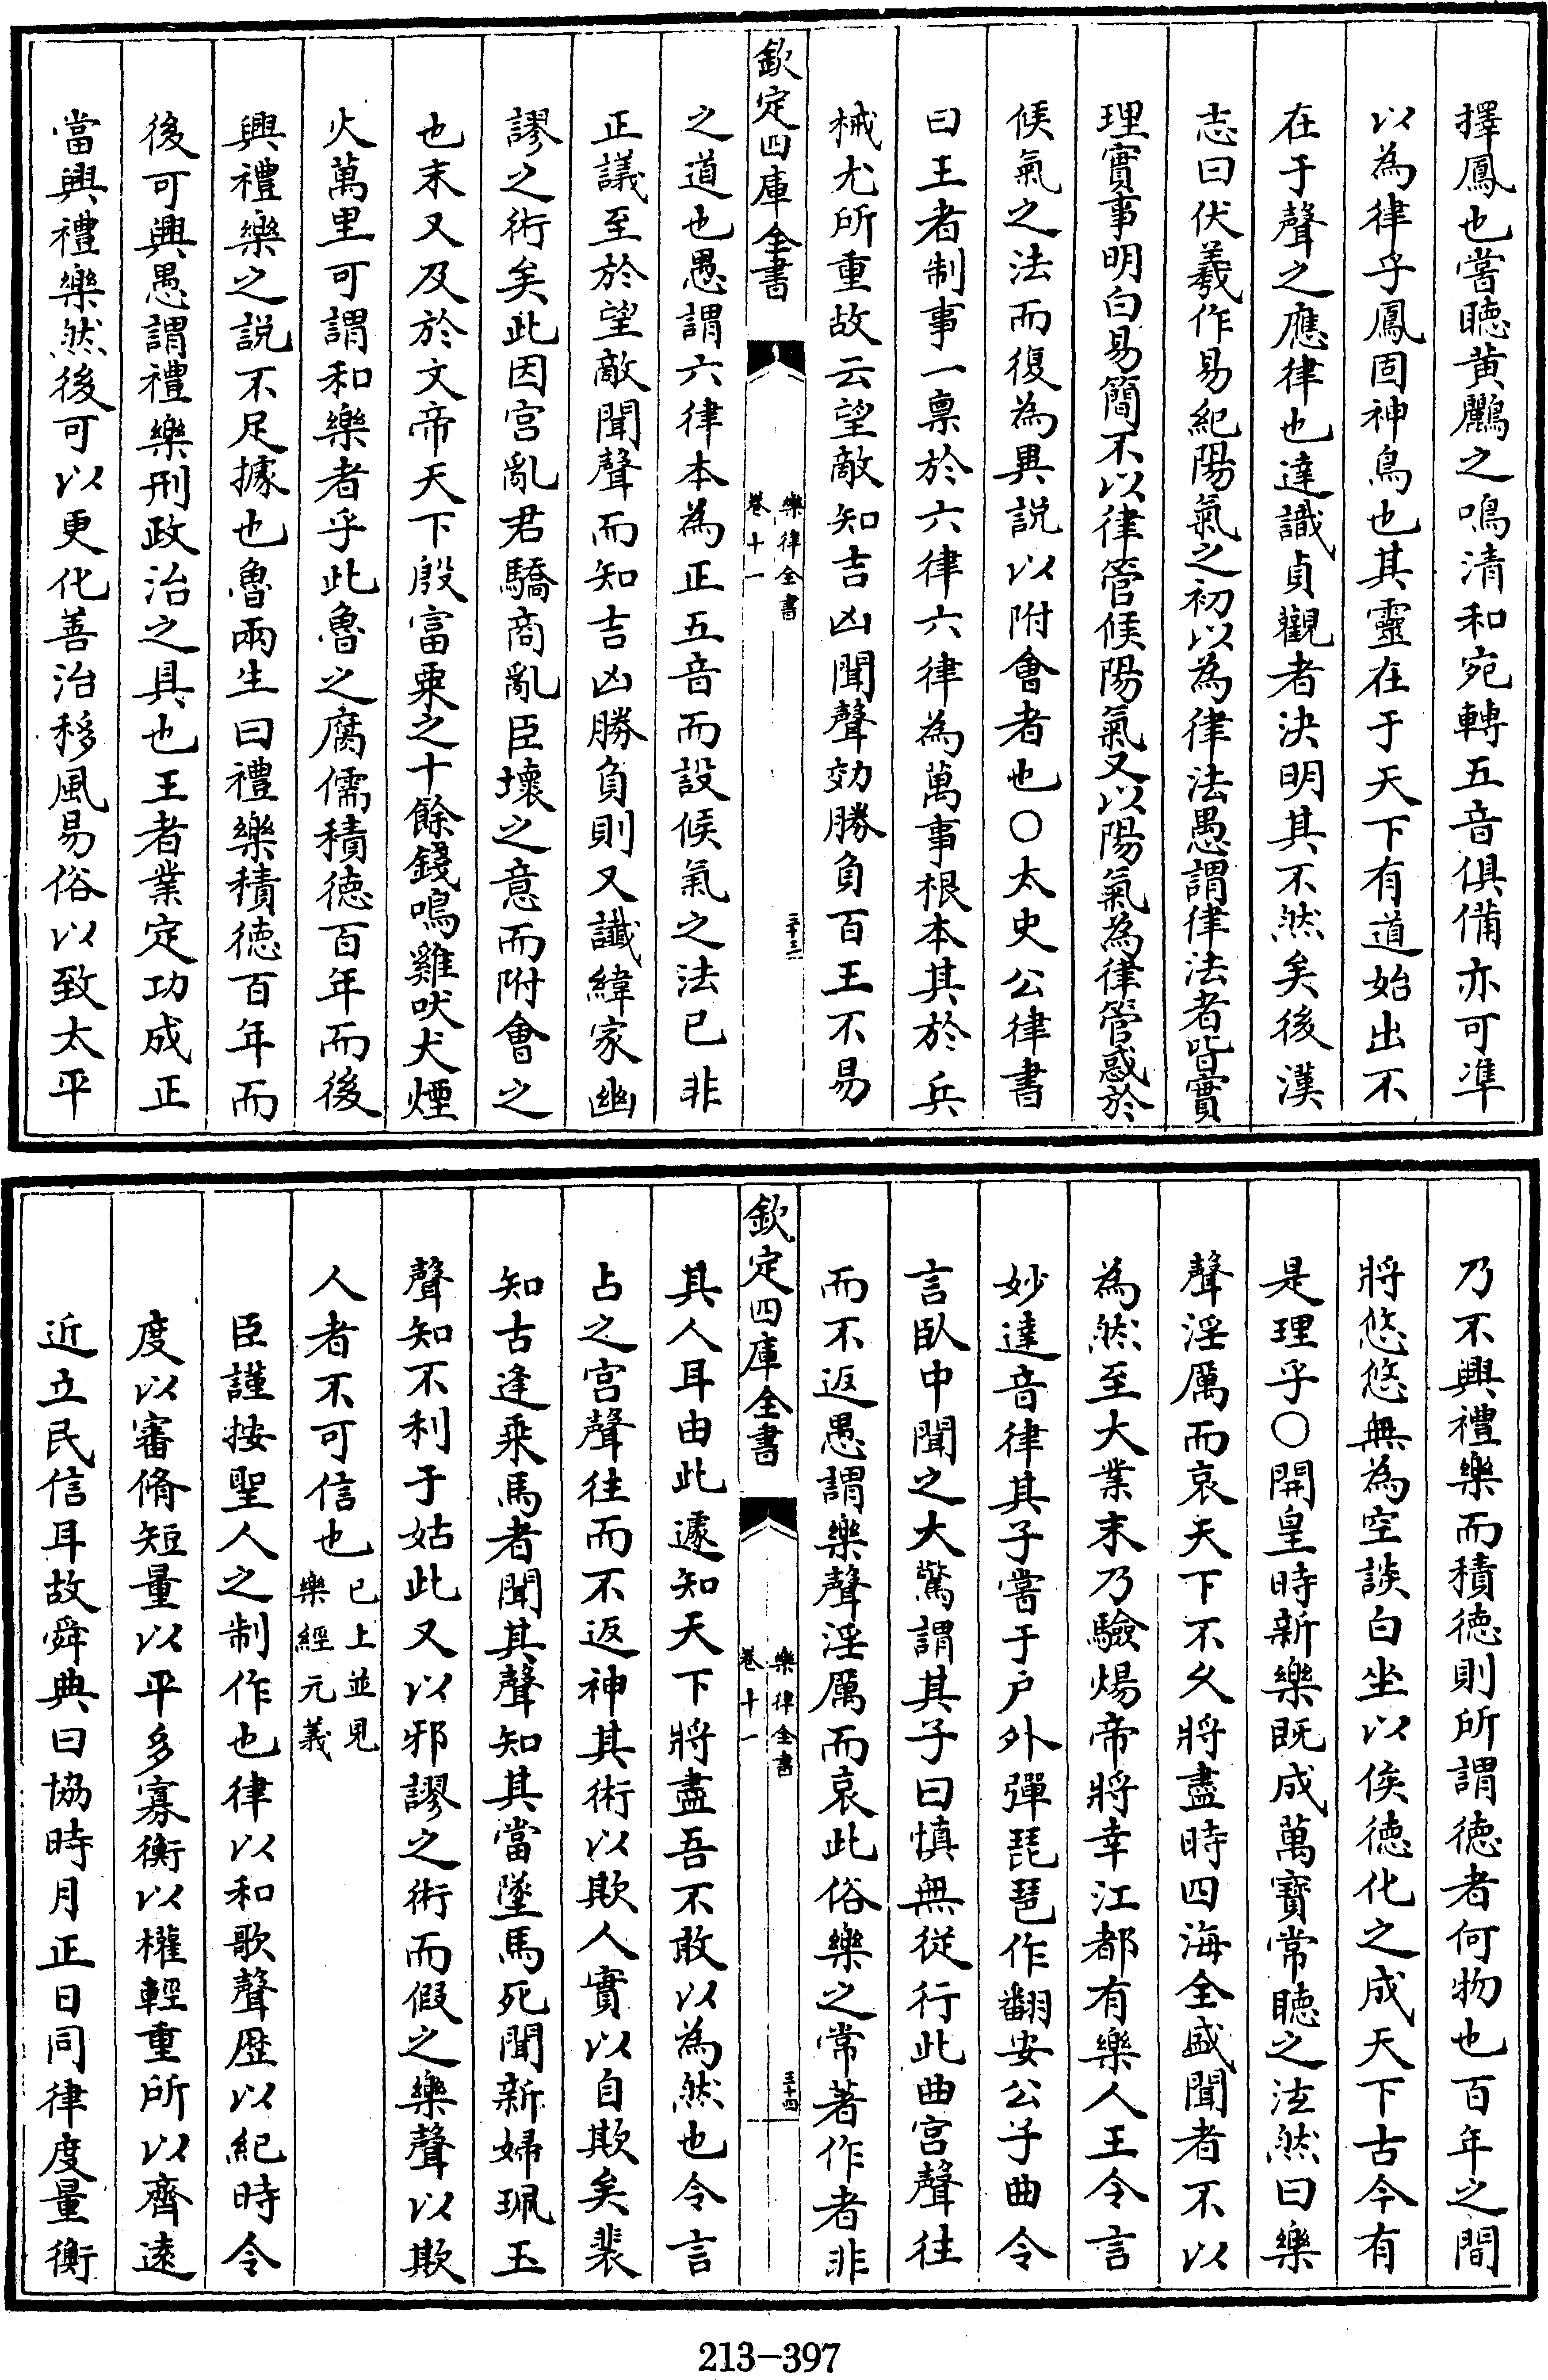 擇鳳也嘗聴黄鸝之鳴清和宛轉五音俱備亦可準
以為律乎鳳固神鳥也其靈在于天下有道始出不
在于聲之應律也達識貞觀者決明其不然矣後漢
志曰伏羲作易紀陽氣之初以為律法愚謂律法者皆實
理實事明白易簡不以律管候陽氣又以陽氣為律管惑於
候氣之法而復為異説以附會者也○太史公律書
曰王者制事一禀於六律六律為萬事根本其於兵
械尤所重故云望敵知吉凶聞聲効勝負百王不易
欽定四庫全書
樂律全書
卷十一
三十三
之道也愚謂六律本為正五音而設候氣之法已非
正議至於望敵聞聲而知吉凶勝負則又讖緯家幽
謬之術矣此因宫亂君驕商亂臣壞之意而附會之
也末又及於文帝天下殷富粟之十餘錢鳴雞吠犬煙
火萬里可謂和樂者乎此魯之腐儒積徳百年而後
興禮樂之説不足據也魯兩生曰禮樂積徳百年而
後可興愚謂禮樂刑政治之具也王者業定功成正
當興禮樂然後可以更化善治移風易俗以致太平
乃不興禮樂而積徳則所謂徳者何物也百年之間
將悠悠無為空談白坐以俟徳化之成天下古今有
是理乎○開皇時新樂既成萬寳常聴之泫然曰樂
聲淫厲而哀天下不久將盡時四海全盛聞者不以
為然至大業末乃驗煬帝將幸江都有樂人王令言
妙達音律其子嘗于户外彈琵琶作翻安公子曲令
言臥中聞之大驚謂其子曰慎無從行此曲宫聲往
而不返愚謂樂聲淫厲而哀此俗樂之常著作者非
欽定四庫全書
樂律全書
卷十一
三十四
其人耳由此遽知天下將盡吾不敢以為然也令言
占之宫聲往而不返神其術以欺人實以自欺矣裴
知古逢乘馬者聞其聲知其當墜馬死聞新婦珮玉
聲知不利于姑此又以邪謬之術而假之樂聲以欺
人者不可信也已上並見
樂經元義
臣謹按聖人之制作也律以和歌聲歴以紀時令
度以審脩短量以平多寡衡以權輕重所以齊遠
近立民信耳故舜典曰協時月正日同律度量衡
213-397